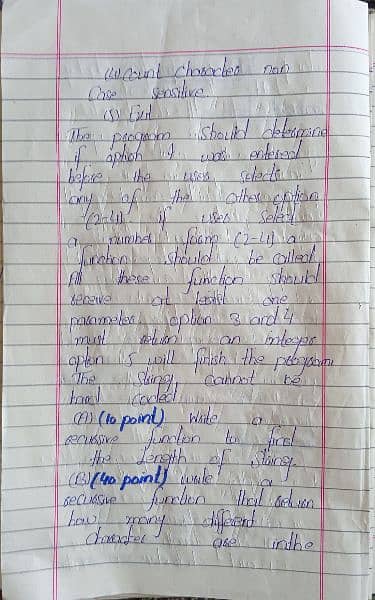 (4) Count character non
Case sensitive
(5) Exit
The program should determine
if option 1 was entered
before the user selects
any of the other option
(2-4) if user select
a number from (2-4) a
function should be called
All these function should
receive at least one
parameter option 3 and 4
must return an integer
option 5 will finish the program
The String cannot be
hard coded.
(A) (10 point) Write a
recursive function to find
the length of String.
(B) (40 point) write a
recursive function that return
how many different
character are inthe